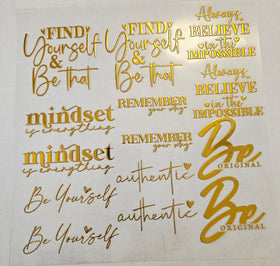 FIND
Yourself
&
Be that
FIND
Yourself
&
Be that
Always
BELIEVE
in the
IMPOSSIBLE
Always
BELIEVE
in the
IMPOSSIBLE
mindset
is everything
mindset
is everything
REMEMBER
your why
REMEMBER
your why
Be
ORIGINAL
Be
ORIGINAL
Be Yourself
Be Yourself
authentic
authentic